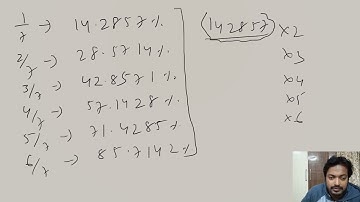 1/7 → 14.2857 %.
2/7 → 28.5714 %.
3/7 → 42.8571 %.
4/7 → 57.1428 %.
5/7 → 71.4285 %
6/7 → 85.7142 %
(142857) x2
x3
x4
x5
x6